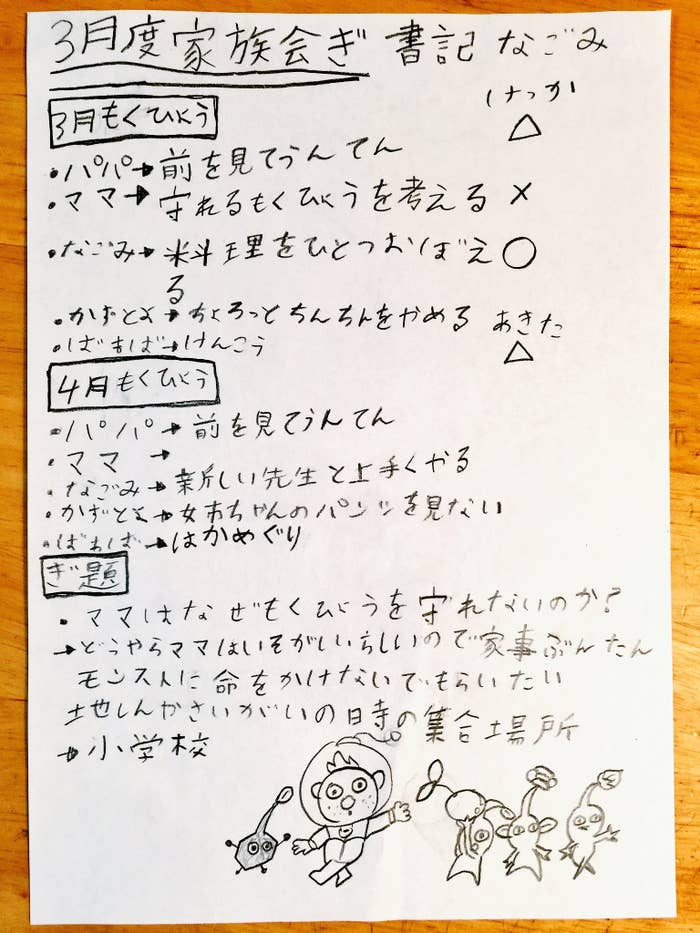 3月度家族会ぎ 書記 なごみ
けっか
3月もくひょう
・パパ→前を見てうんてん △
・ママ→守れるもくひょうを考える ×
・なごみ→料理をひとつおぼえ ○
る
・かずとよ→ちょろっとちんちんをやめる あきた
・ばあば→けんこう △
4月もくひょう
・パパ→前を見てうんてん
・ママ→
・なごみ→新しい先生と上手くやる
・かずとよ→女市ちゃんのパンツを見ない
・ばあば→はかめぐり
ぎ題
・ママはなぜもくひょうを守れないのか?
→どうやらママはいそがしいらしいので家事ぶんたん
モンストに命をかけないでもらいたい
地しんやさいがいの時の集合場所
→小学校